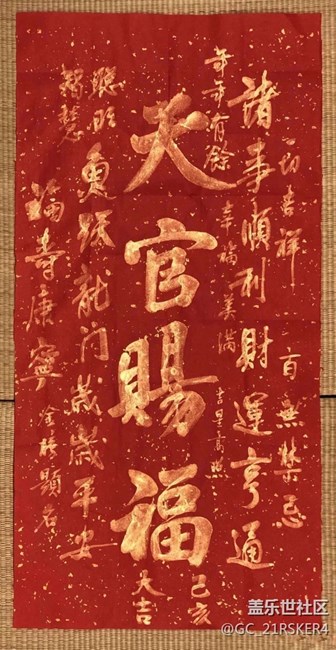 一切喜祥
百無禁忌
諸事順利財運亨通
年年有餘
幸福美满
吉星高照
天官賜福
己亥
大吉
聰明
智慧
魚跃龍门歲歲平安
福壽康寧
金榜題名
盖乐世社区
@GC_21RSKER4